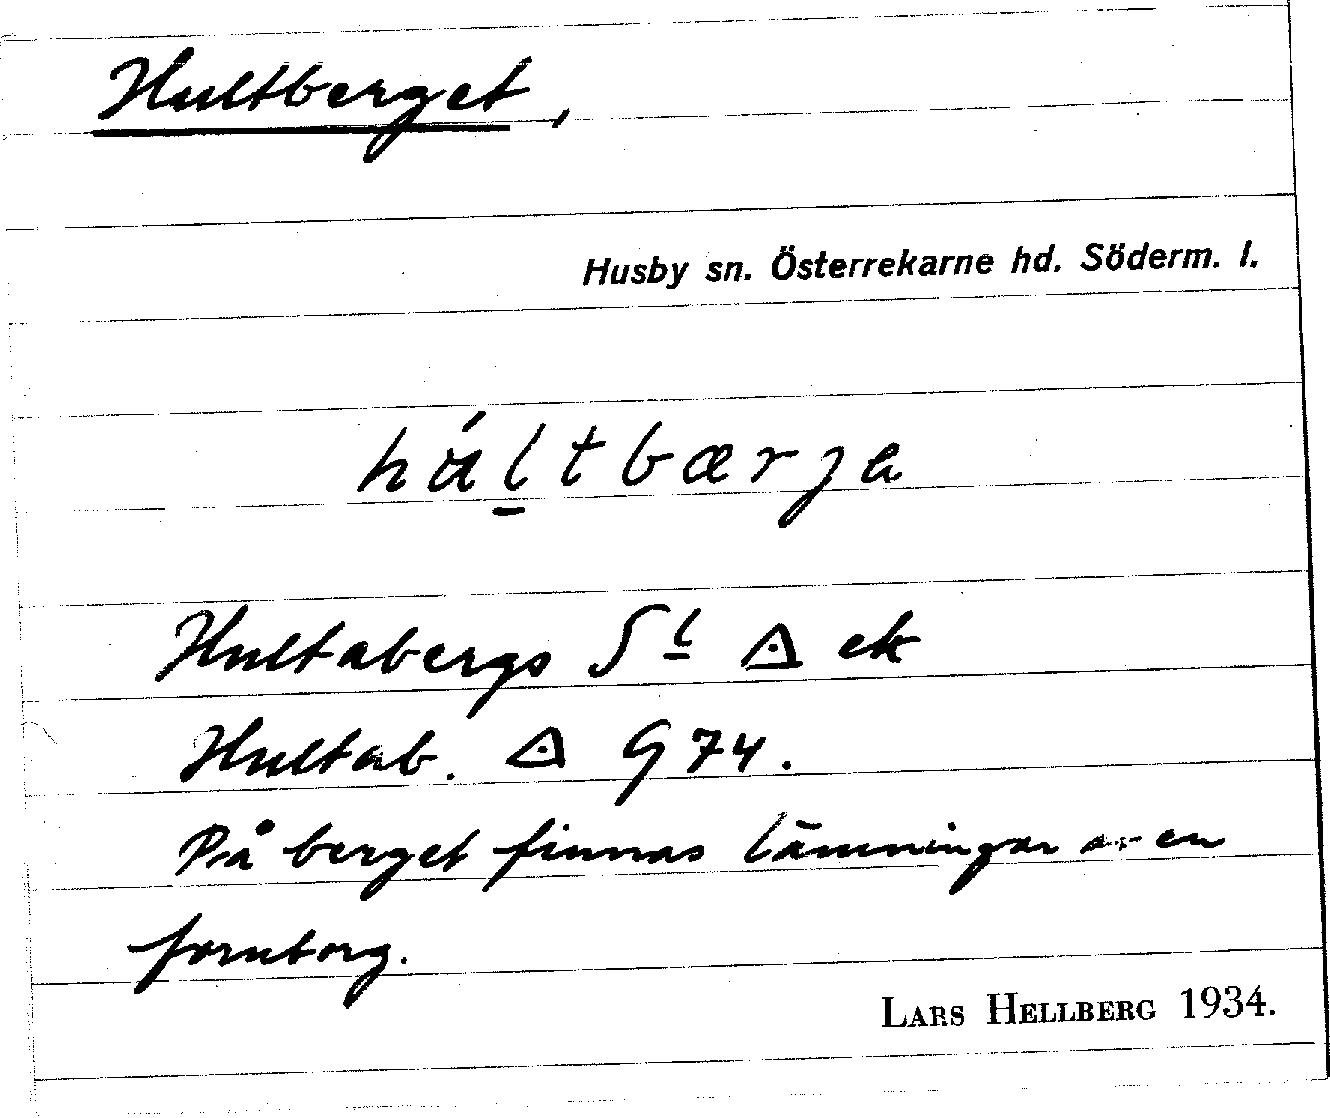 Hultberget,
Husby sn. Österrekarne hd. Söderm. l.
húltbærja
Hultabergs St ⟁ ek
Hultab. ⟁ G 74.
På berget finnas lämningar av en
fornborg.
LARS HELLBERG 1934.